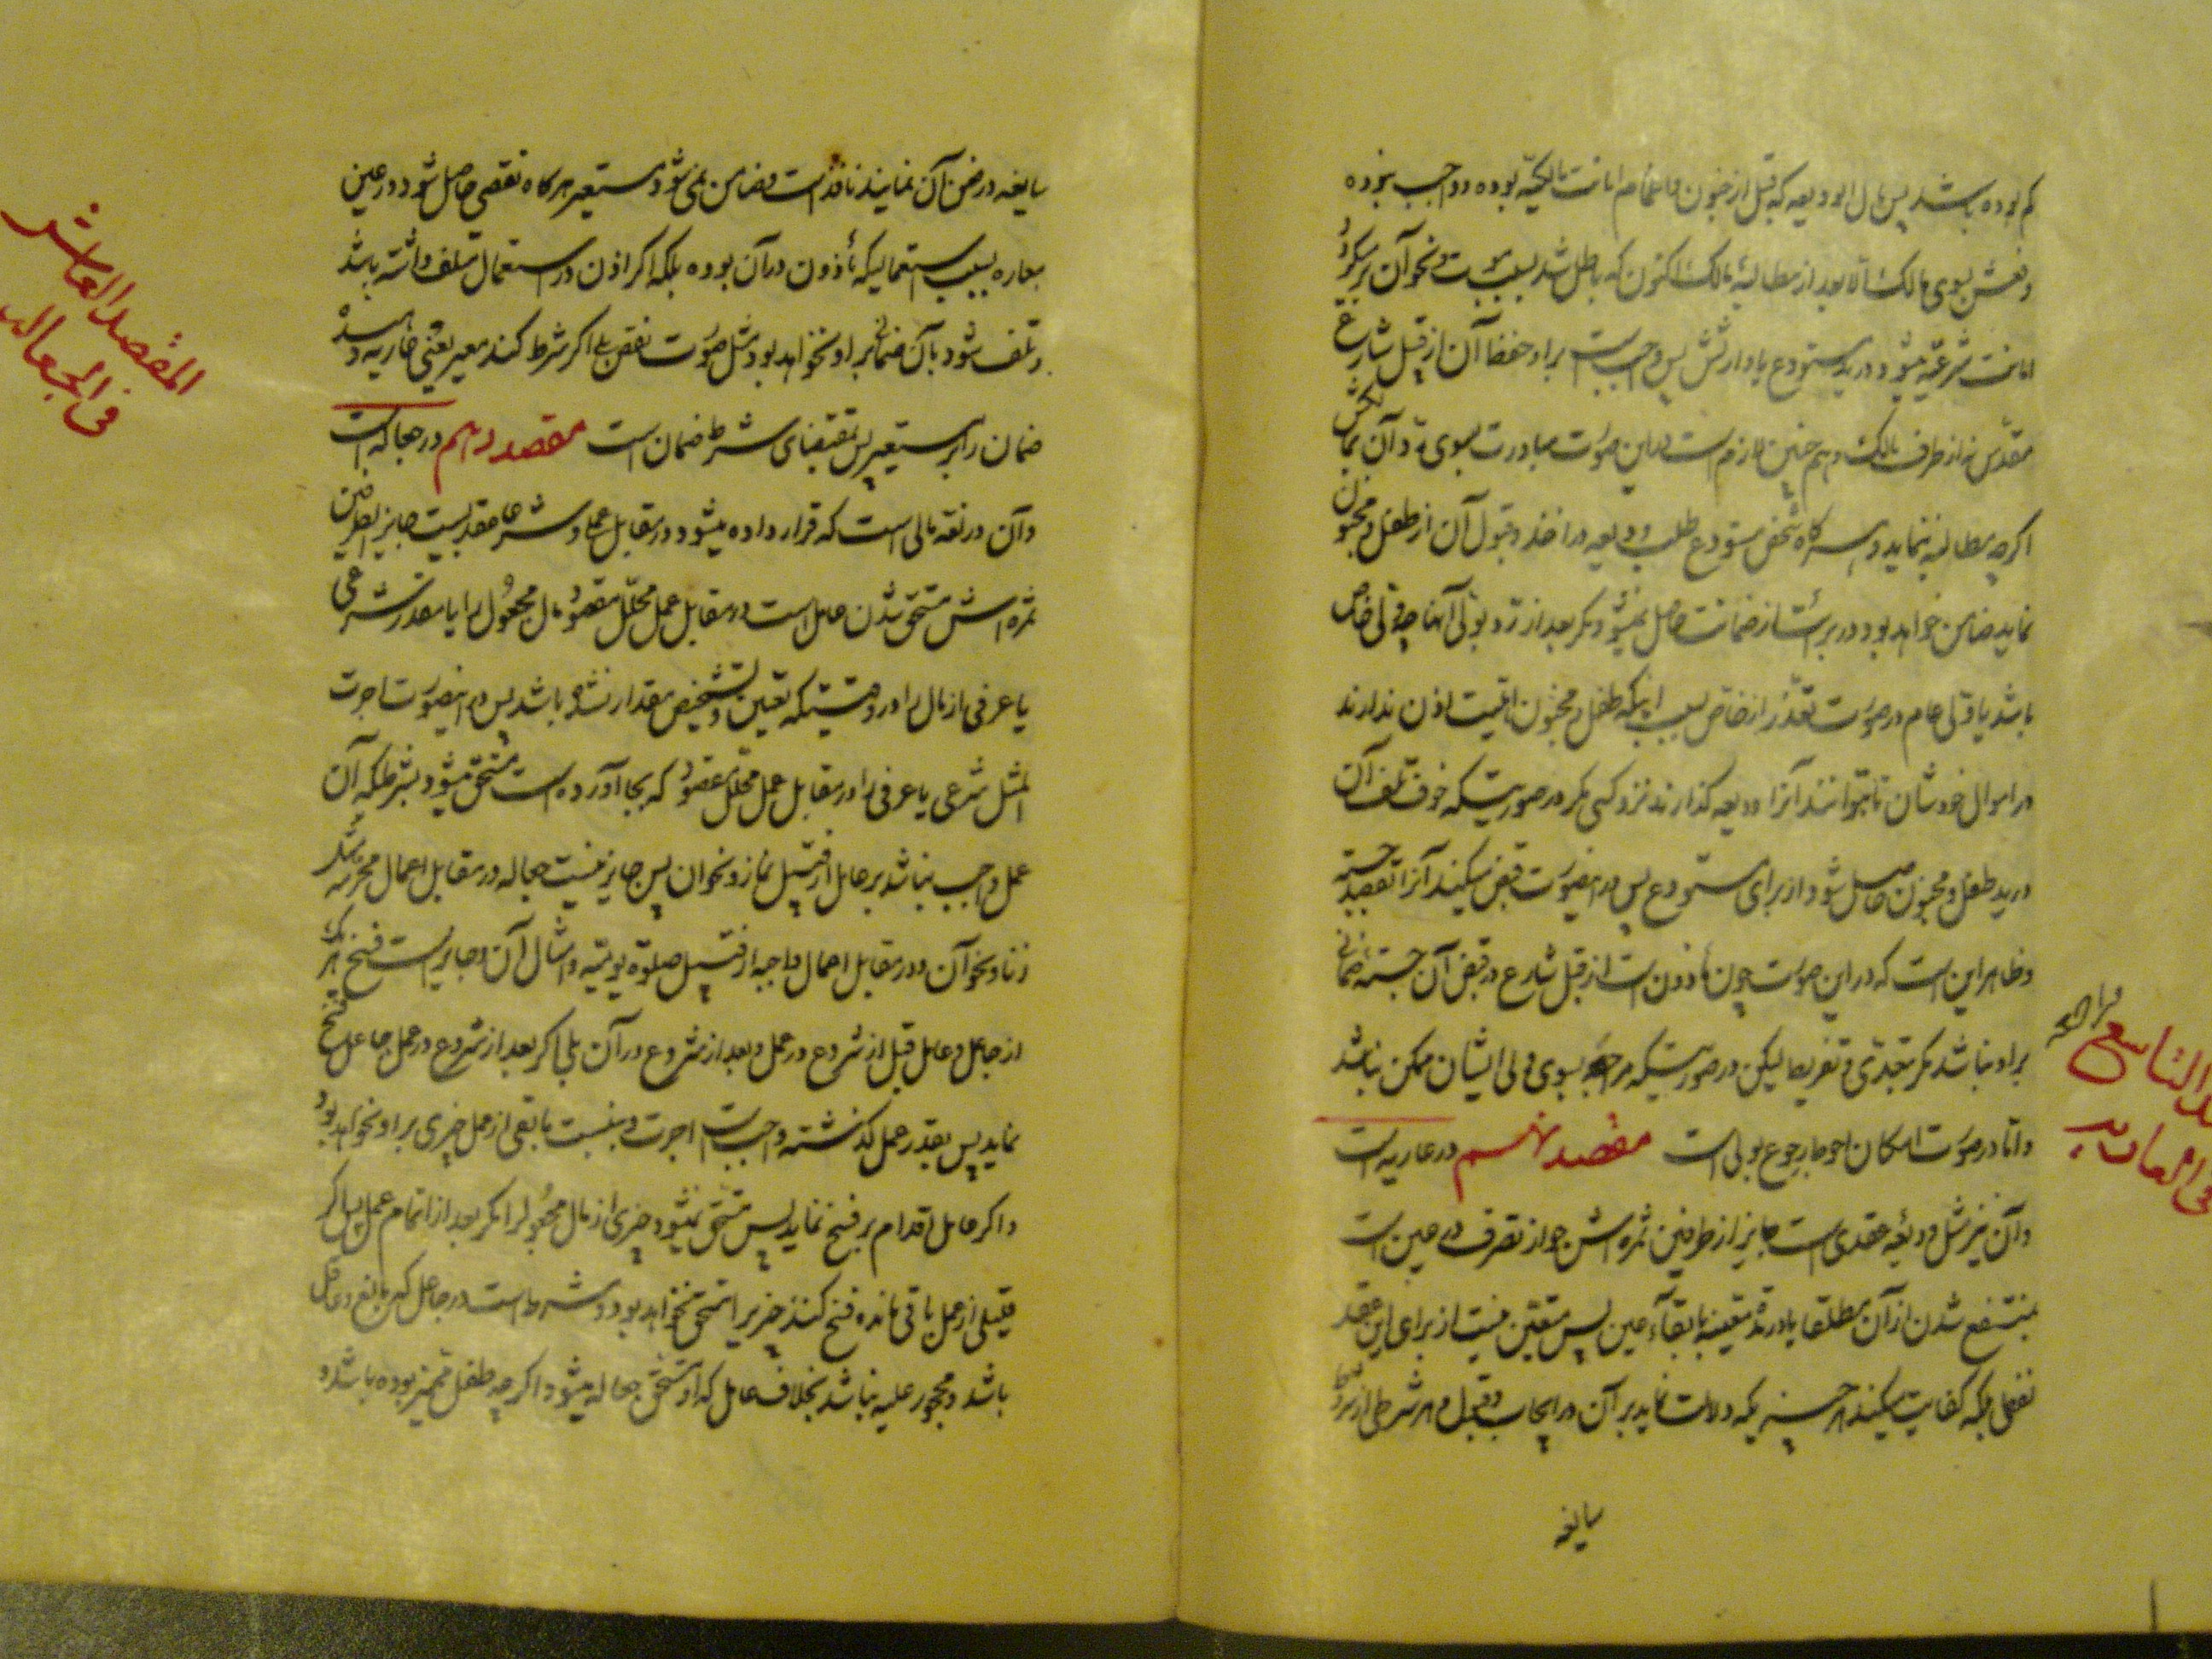 کم بوده باشد پس مال الودیعه که قبل از جنون و اغماء امانت مالکیّه بوده و واجب نبوده
دفعش بسوی مالک الا بعد از مطالبهٔ مالک اکنون که باطل شد بسبب موت و نحو آن بر میگردد
امانت شرعیّه میشود در ید مستودع یا وارثش پس واجب است بر او حفظ آن از قبل شارع
مقدّس نه از طرف مالک و هم چنین لازم است در این صورت مبادرت بسوی ردّ آن بمالکش
اگرچه مطالبه ننماید و هر گاه شخص مستودع طلب ودیعه و اخذ و قبول آن از طفل و مجنون
نماید ضامن خواهد بود و برائت از ضمانت حاصل نمیشود مگر بعد از ردّ بولی آنها چه ولی خاص
باشد یا ولی عام در صورت تعذّر از خاص بسبب اینکه طفل و مجنون اهلیت اذن ندارند
در اموال خودشان تا بتوانند آنرا ودیعه گذارند نزد کسی مگر در صورتیکه خوف تلف آن
در ید طفل و مجنون حاصل شود از برای مستودع پس در اینصورت قبض میکند آنرا بقصد حسبه
و ظاهر این است که در این صورت چون مأذون است از قبل شارع در قبض آن حسبةً ضمانی
بر او نباشد مگر بتعدّی و تفریط لیکن در صورتیکه مراجعه بسوی ولی ایشان ممکن نباشد
و امّا در صورت امکان احوط رجوع بولی است مقصد نهم در عاریه است
مراجعه
المقصد التاسع
فی العاریه
و آن نیز مثل ودیعه عقدی است جایز از طرفین ثمره اش جواز تصرف در عین است
بمنتفع شدن از آن مطلقا یا در مدّة معیّنه با بقاء عین پس متعیّن نیست از برای این عقد
لفظی بلکه کفایت میکند هر چیزیکه دلالت نماید بر آن در ایجاب و قبول و هر شرطی از شروط
سایغه
سایغه در ضمن آن نمایند نافذ است و ضامن نمی شود مستعیر هر گاه نقصی حاصل شود در عین
معاره بسبب استعمالیکه مأذون در آن بوده بلکه اگر اذن در استعمال متلف داشته باشد
و تلف شود بآن ضمانی بر او نخواهد بود مثل صورت نقص بلی اگر شرط کند معیر یعنی عاریه دهنده
ضمان را بر مستعیر پس مقتضای شرط ضمان است مقصد دهم در جعاله است
المقصد العاشر
فی الجعاله
و آن در لغه مالی است که قرار داده میشود در مقابل عملی و شرعا عقدیست جایز الطرفین
ثمره اش مستحق شدن عامل است در مقابل عمل محلّل مقصود مال مجعول را یا مقدر شرعی
یا عرفی از مال را در وقتیکه تعیین و تشخیص مقدار نشده باشد پس در اینصورت اجرت
المثل شرعی یا عرفی را در مقابل عمل محلّل مقصود که بجا آورده است مستحق میشود بشرطیکه آن
عمل واجب نباشد بر عامل از قبیل نماز و نحو ان پس جایز نیست جعاله در مقابل اعمال محرّمه مثل
زنا و نحو آن و در مقابل اعمال واجبه از قبیل صلوة یومیّه و امثال آن و جایز است فسخ هر یک
از جاعل و عامل قبل از شروع در عمل و بعد از شروع در آن بلی اگر بعد از شروع در عمل جاعل فسخ
نماید پس بقدر عمل گذشته واجب است اجرت و بنسبت مابقی از عمل چیزی بر او نخواهد بود
و اگر عامل اقدام بر فسخ نماید پس مستحق نمیشود چیزی از مال مجعول را مگر بعد از اتمام عمل پس اگر
قلیلی از عمل باقی مانده فسخ کند چیزیرا مستحق نخواهد بود و شرط است در جاعل که بالغ و عاقل
باشد و محجور علیه نباشد بخلاف عامل که او مستحق جعاله میشود اگرچه طفل ممیّز بوده باشد و